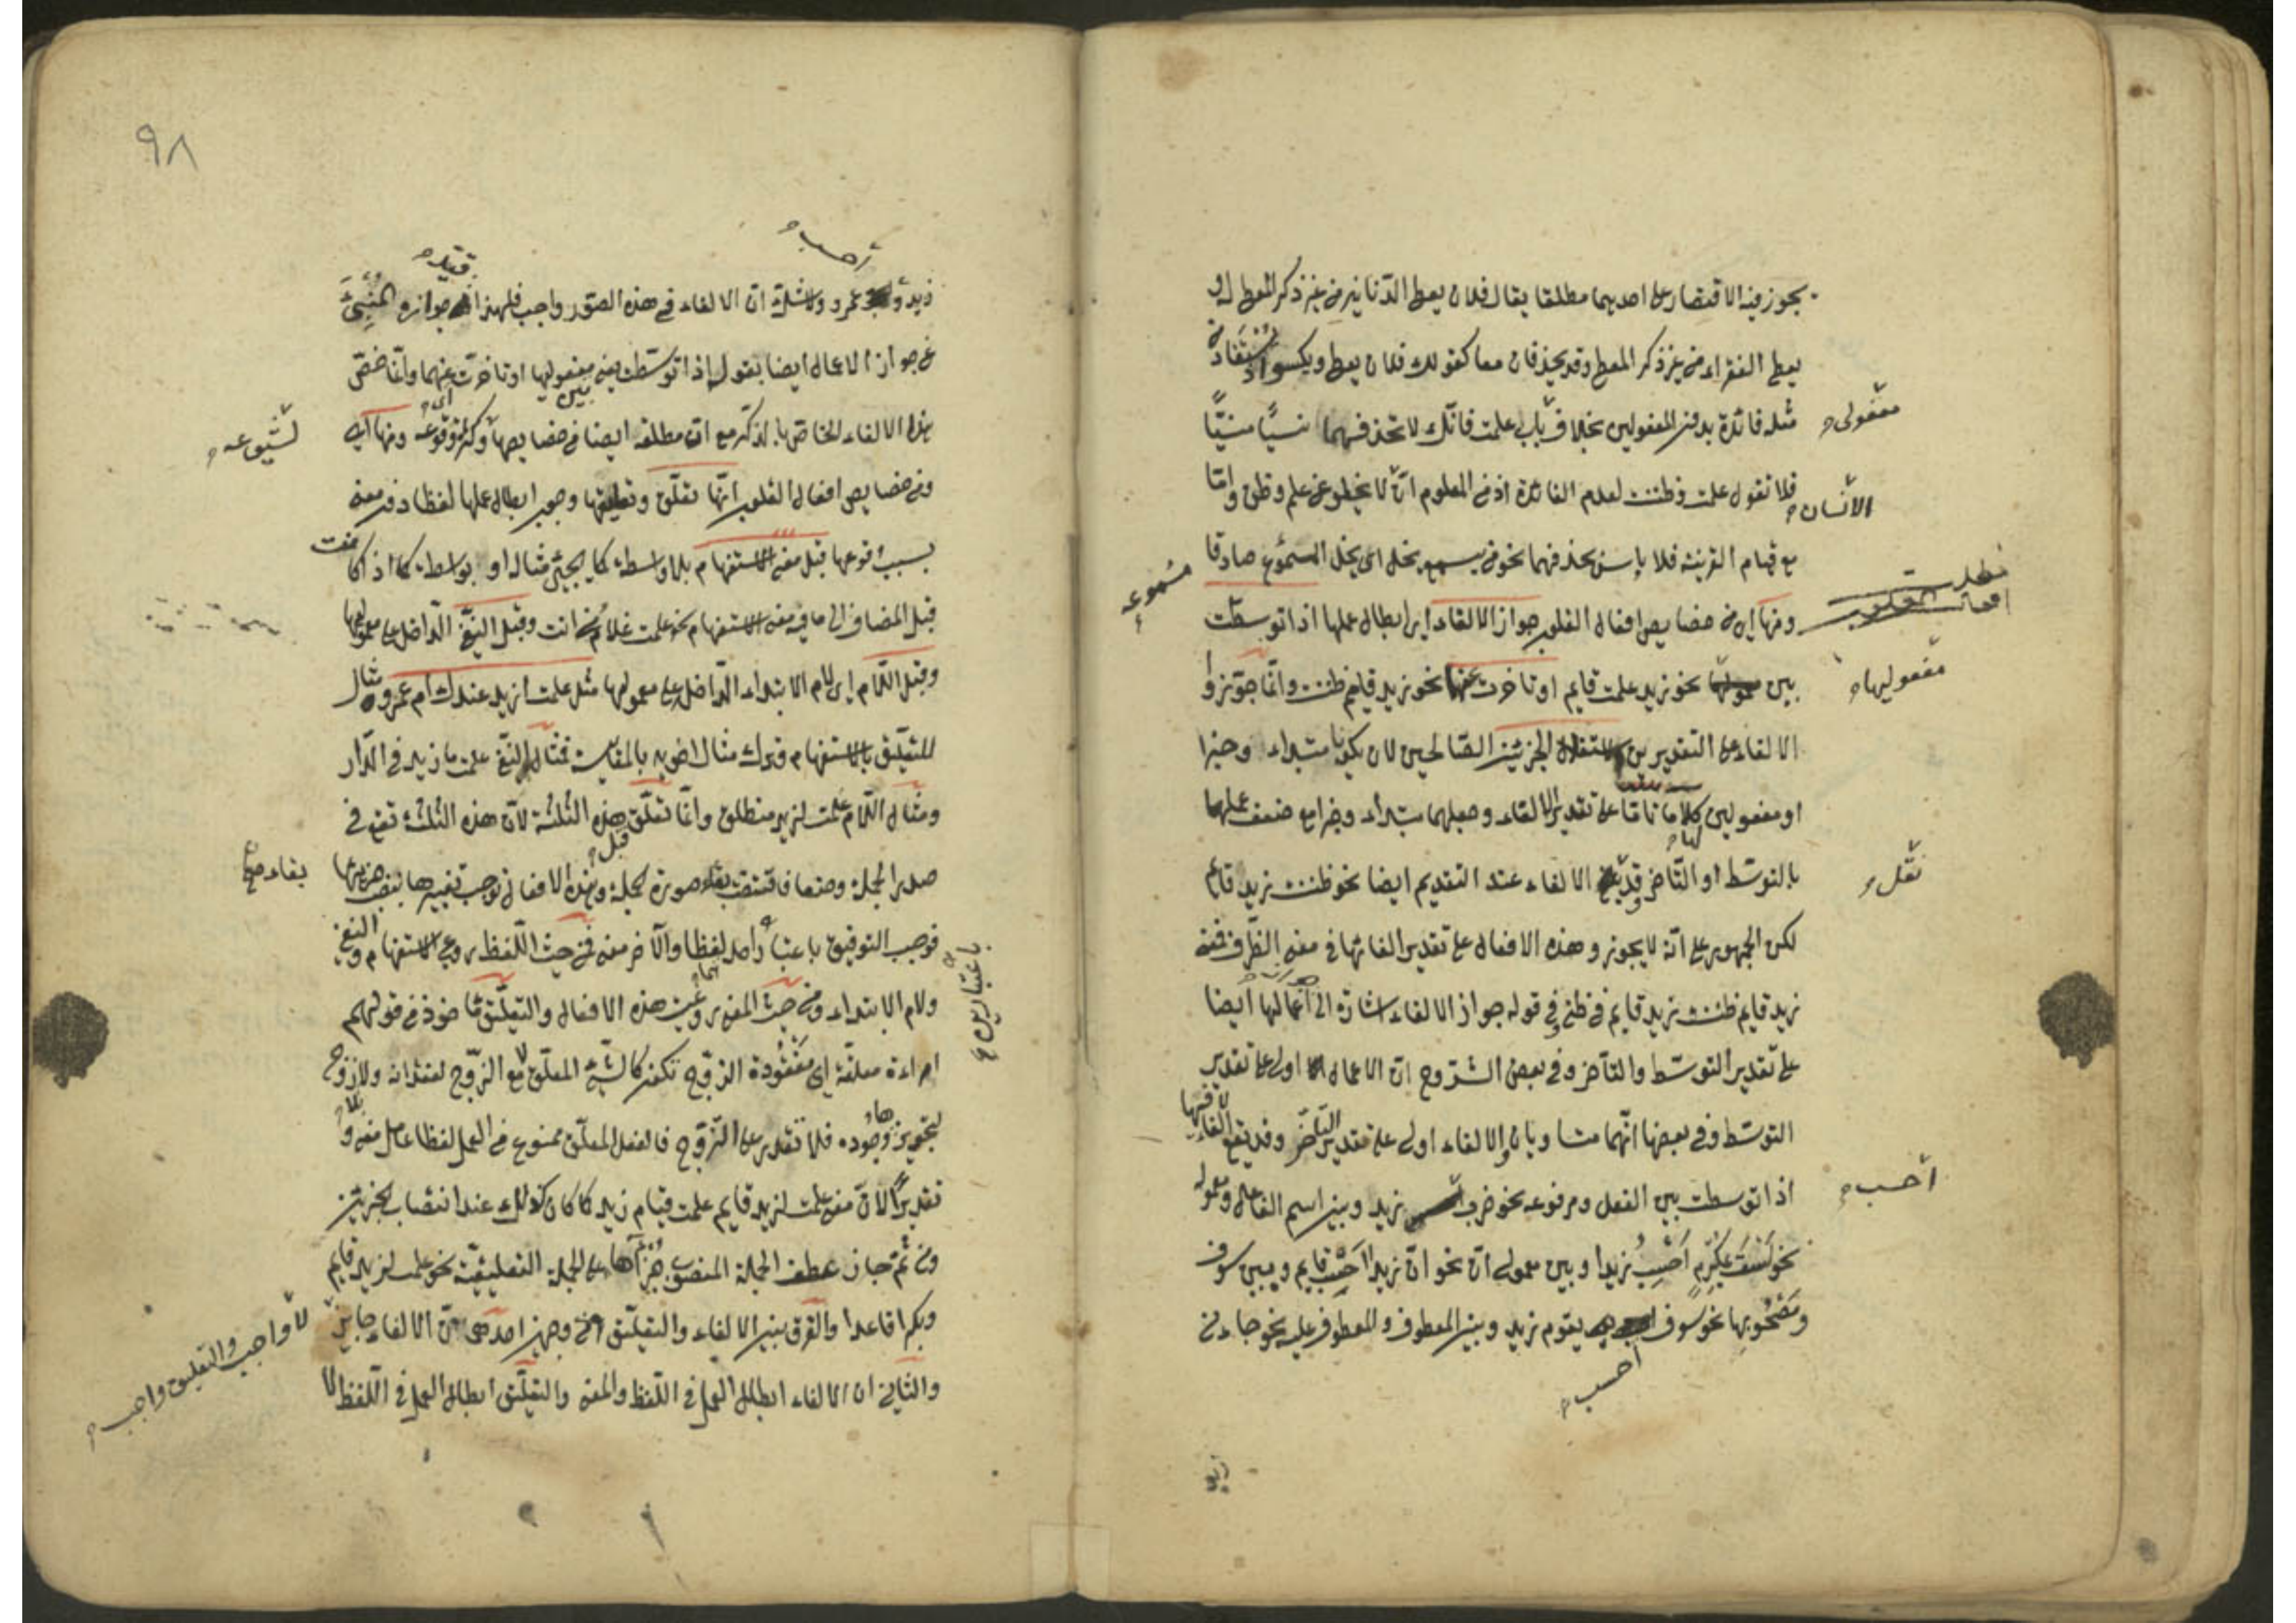 يجوز فيه الاقتصار على احدهما مطلقا يقال فلان يعطي الدنانير من غير ذكر المعطى له و
يعطي الفقراء من غير ذكر المعطى وقد يحذفان معا كقولك فلان يعطي ويكسو اذ يستفاد من
مثله فائدة بدون المفعولين بخلاف باب علمت فانك لا تحذفهما نسيا منسيا
مفعولى
فلا تقول علمت وظننت لعدم الفائدة اذ من المعلوم ان لا يخلو عن علم وظن واما
الانسان
مع قيام القرينة فلا باس بحذفهما نحو من يسمع يخل اى يخل المسموع صادقا
مسموعه
ومنها اى من خصايص افعال القلوب جواز الالغاء اى ابطال عملها اذا توسطت
بين نحو زيد علمت قايم او تاخرت عنها نحو زيد قايم ظننت وانما جوزوا
مفعوليها
الالغاء على التقديرين لاستقلال الجزئين الصالحين لان يكونا مبتداء وخبرا
او مفعولين لها كلاما تاما على تقدير الالغاء وجعلهما مبتداء وخبرا مع ضعف عملها
بالتوسط او التاخر وقد الالغاء عند التقديم ايضا نحو ظننت زيد قايم
نقل
لكن الجمهور على انه لا يجوز وهذه الافعال على تقدير الغائها في معنى الظرف فمعنى
زيد قايم ظننت زيد قايم في ظني وفي قوله جواز الالغاء اشارة الى اعمالها ايضا
على تقدير التوسط والتاخر وفي بعض الشروح ان الاعمال اولى على تقدير
التوسط وفي بعضها انهما متساويان والالغاء اولى على تقدير التاخر وقد يقع الغاء فيها
اذا توسطت بين الفعل ومرفوعه نحو ضرب زيد وبين اسم الفاعل ومعموله
احسب
نحو لست بمكرم احسب زيدا وبين معمولى ان نحو ان زيدا احسب قايم وبين سوف
ومصحوبها نحو سوف يقوم زيد وبين المعطوف والمعطوف عليه نحو جاءني
احسب
زيد
٩٨
احسب
قيد
زيد و عمرو ولا شك ان الالغاء في هذه الصور واجب فلهذا جوازه المنبئ
عن جواز الاعمال ايضا بقوله اذا توسطت بين مفعوليها او تاخرت عنهما وانما خص
هذا الالغاء الخاص بالذكر مع ان مطلقه ايضا من خصايصها وكثرة وقوعه ومنها اى
لشيوعه
ومن خصايص افعال القلوب انها تعلق وتعليقها وجوب ابطال عملها لفظا دون معنى
بسبب وقوعها قبل معنى الاستفهام بلا واسطة كما يجئ مثاله او بواسطة كما اذا كانت
قبل المضاف الى ما فيه معنى الاستفهام نحو علمت غلام من انت وقبل النفي الداخل على معمولها
وقبل اللام اى لام الابتداء الداخل على معمولها مثل علمت ازيد عندك ام عمرو مثال
للتعليق بالاستفهام وترك مثال اخويه بالمقايسة فمثال النفي علمت ما زيد في الدار
ومثال اللام علمت لزيد منطلق وانما تعلق قبل هذه الثلثة لان هذه الثلثة تقع في
صدر الجملة وضعا فاقتضت بقاء صورة الجملة وهذه الافعال توجب تغييرها بنصب جزئيها
بقاء صح
فوجب التوفيق باعتبار احدهما لفظا والاخر معنى فمن حيث اللفظ روعى الاستفهام والنفي
باعتبارين
ولام الابتداء ومن حيث المعنى روعيت هذه الافعال والتعليق ماخوذ من قولهم
امراءة معلقة اى مفقودة الزوج تكون كالشئ المعلق لا مع الزوج لفقدانه ولا بلا زوج
لتجويزها وجوده فلا تقدر على التزوج فالفعل المعلق ممنوع من العمل لفظا عامل معنى و
تقديرا لان معنى علمت لزيد قايم علمت قيام زيد كما كان كذلك عند انتصاب الجزئين
ومن ثم جاز عطف الجملة المنصوب جزاها على الجملة التعليقية نحو علمت لزيد قايم
وبكرا قاعدا والفرق بين الالغاء والتعليق من وجهين احدهما ان الالغاء جايز
لا واجب والتعليق واجب
والثاني ان الالغاء ابطال العمل في اللفظ والمعنى والتعليق ابطال العمل في اللفظ لا